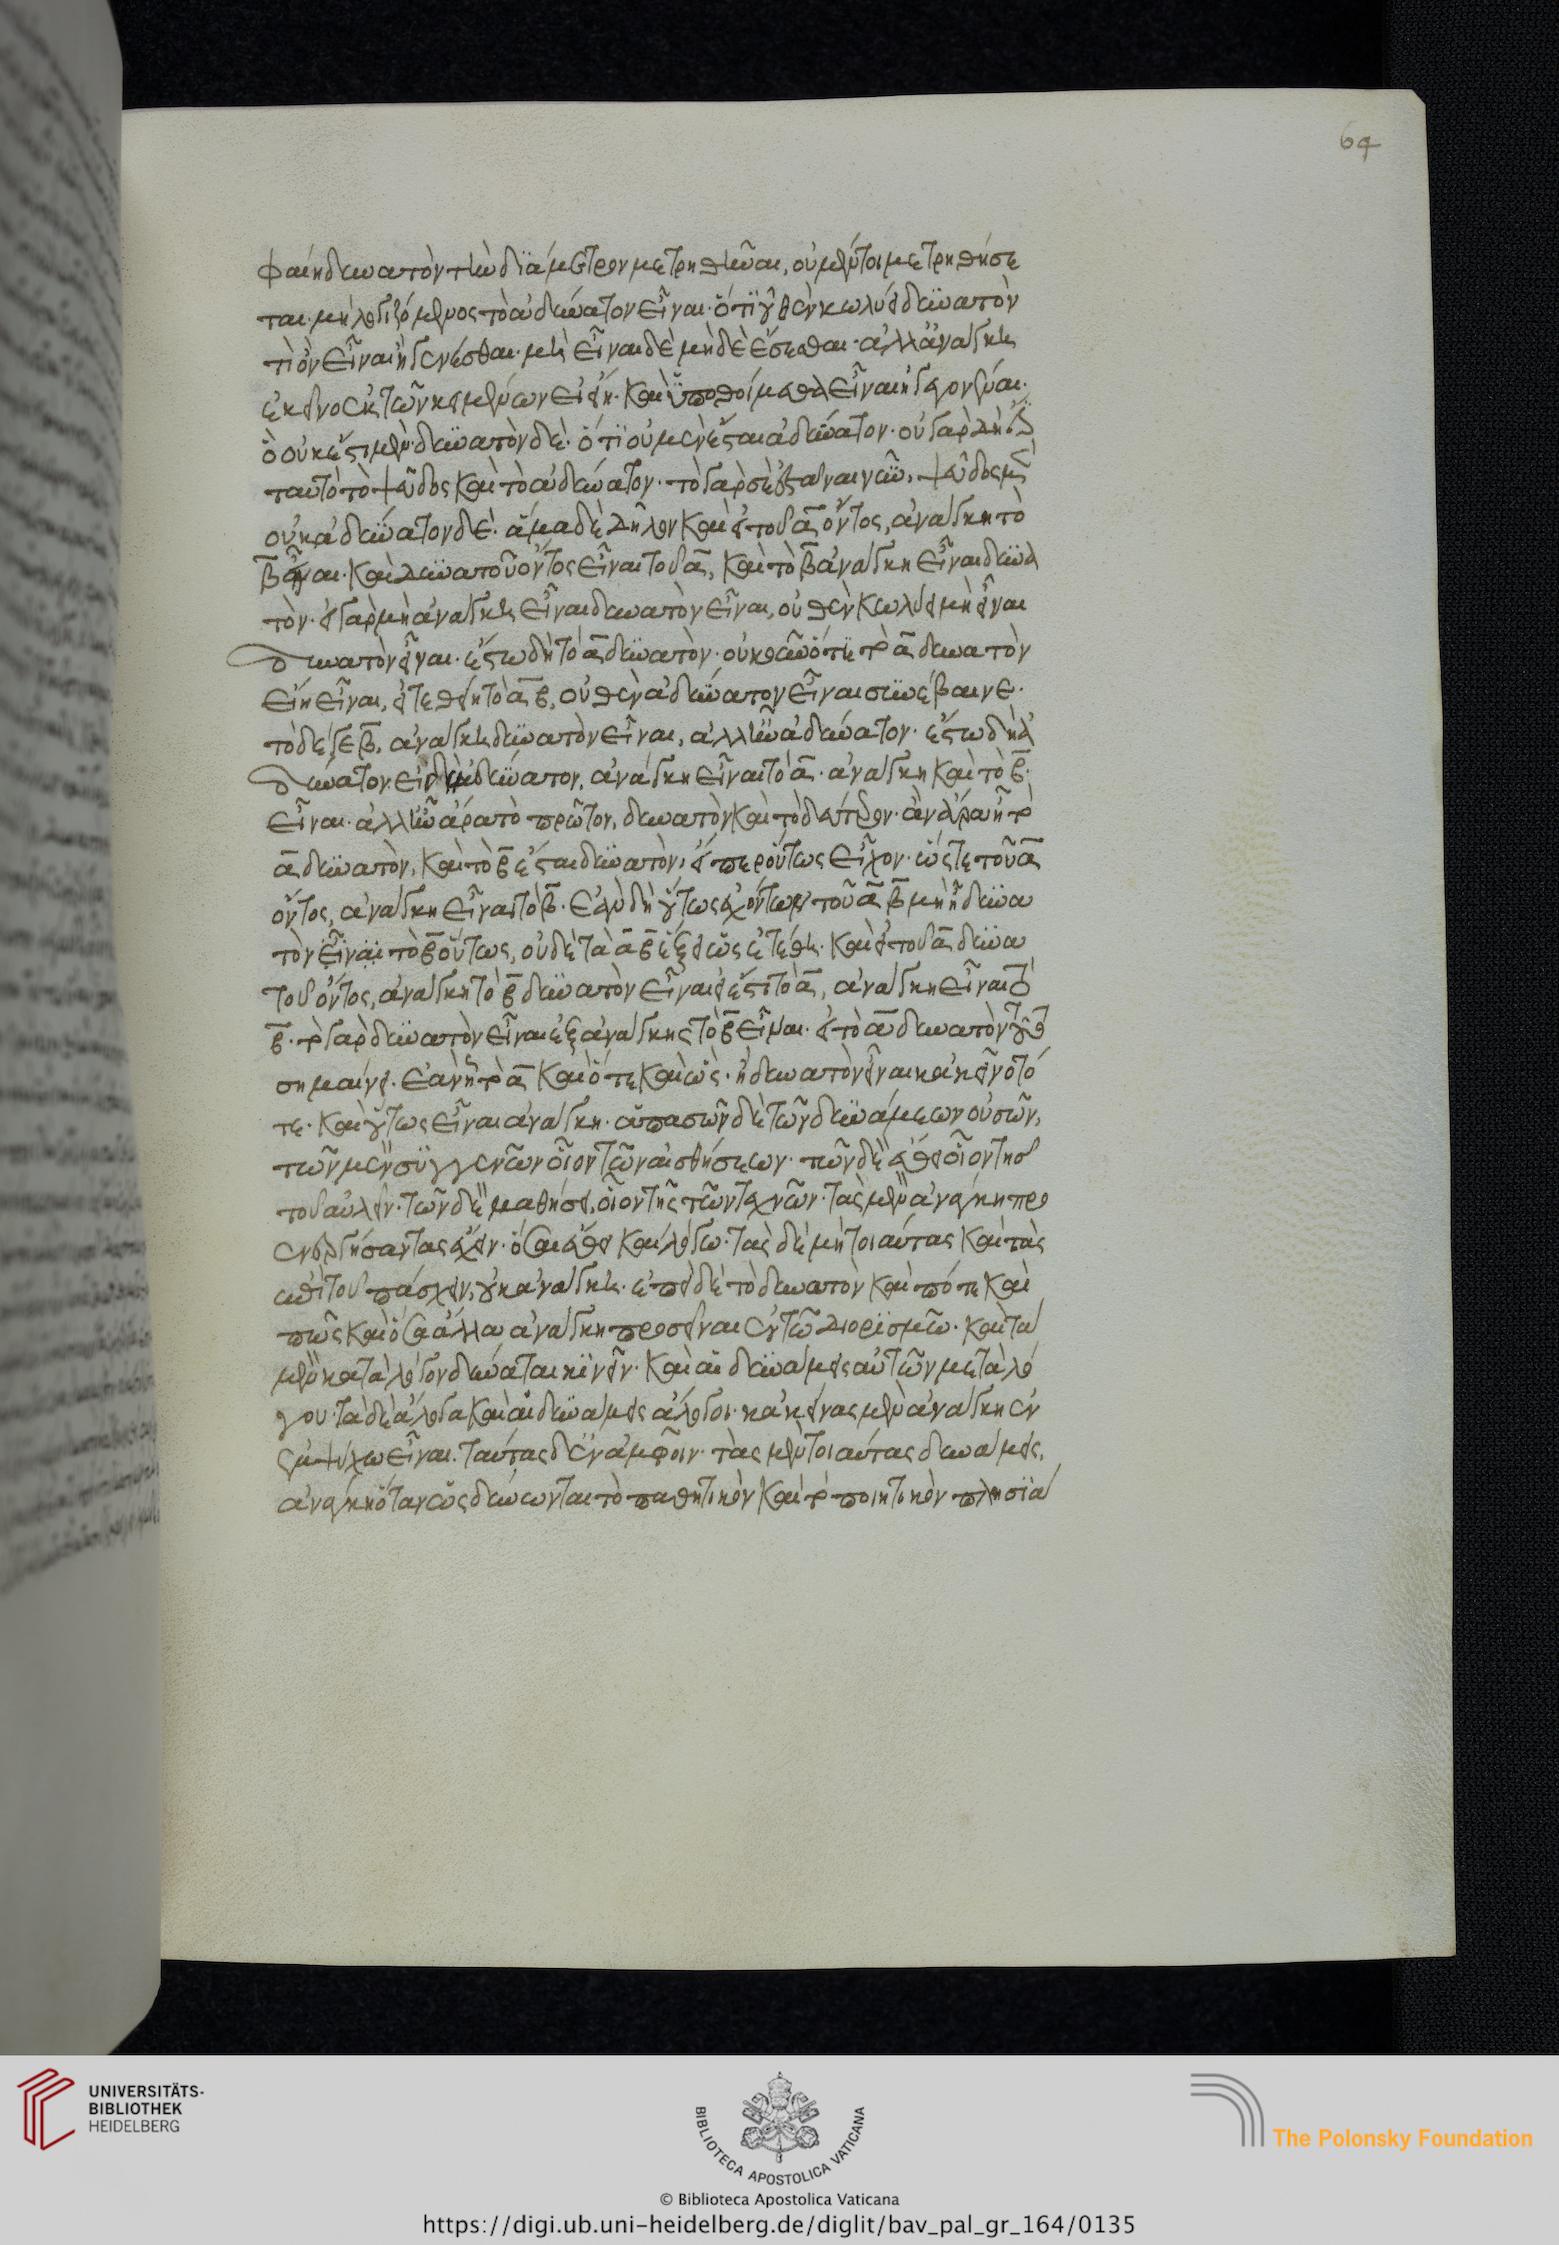 64
φαίη δυνατὸν τὴν διάμετρον μετρηθῆναι, οὐ μέντοι μετρηθήσε
ται· μὴ λογιζόμενος τὸ ἀδύνατον εἶναι· ὅτι οὐθὲν κωλύει δυνατὸν
τὶ ὂν εἶναι ἢ γενέσθαι· μὴ εἶναι δὲ μὴδὲ ἔσεσθαι· ἀλλ' ἀνάγκη
ἐκεῖνο ἐκ τῶν κειμένων εἰ εἴη. καὶ ὑποθοίμεθα εἶναι ἢ γεγονέναι.
ὃ οὐκ ἔστι μὲν· δυνατὸν δὲ· ὅτι οὐθὲν ἔσται ἀδύνατον· οὐ γὰρ δή ἐστι
ταυτὸ τὸ ψεῦδος καὶ τὸ ἀδύνατον· τὸ γὰρ σὲ ἑστάναι νῦν, ψεῦδος μὲν
οὐκ ἀδύνατον δέ. ἅμα δὲ δῆλον καὶ εἰ τοῦ α̅ ὄντος, ἀνάγκη τὸ
β̅ εἶναι. καὶ δυνατοῦ ὄντος εἶναι τοῦ α̅, καὶ τὸ β̅ ἀνάγκη εἶναι δυνα
τόν· εἰ γὰρ μὴ ἀνάγκη εἶναι δυνατὸν εἶναι, οὐθὲν κωλύει μὴ εἶναι
δυνατὸν εἶναι. ἔστω δὴ τὸ α̅ δυνατὸν· οὐκοῦν ὅτε τὸ α̅ δυνατὸν
εἴη εἶναι, εἰ τεθείη τὸ α̅ β̅, οὐθὲν ἀδύνατον εἶναι συνέβαινε·
τὸ δέ γε β̅, ἀνάγκη δυνατὸν εἶναι, ἀλλ' ἦν ἀδύνατον. ἔστω δὴ ἀ
δύνατον. εἰ δὴ ἀδύνατον, ἀνάγκη εἶναι τὸ α̅· ἀνάγκη καὶ τὸ β̅
εἶναι. ἀλλ' ἦν ἄρα τὸ πρῶτον, δυνατὸν καὶ τὸ δεύτερον· ἂν ἄρα ᾖ τὸ
α̅ δυνατὸν, καὶ τὸ β̅ ἔσται δυνατὸν, εἴπερ οὕτως εἶχον· ὥστε τοῦ α̅
ὄντος, ἀνάγκη εἶναι τὸ β̅. ἐὰν δὴ οὕτως ἐχόντων τοῦ α̅ β̅ μὴ ᾖ δυνα
τὸν εἶναι τὸ β̅ οὕτως, οὐδὲ τὰ α̅ β̅ ἕξει ὡς ἐτέθη. καὶ εἰ τοῦ α̅ δυνα
τοῦ ὄντος, ἀνάγκη τὸ β̅ δυνατὸν εἶναι εἰ ἔστι τὸ α̅, ἀνάγκη εἶναι τὸ
β̅. τὸ γὰρ δυνατὸν εἶναι ἐξ ἀνάγκης τὸ β̅ εἶναι· εἰ τὸ α̅ δυνατὸν τοῦτο
σημαίνει. ἐὰν ᾖ τὸ α̅ καὶ ὅτε καὶ ὡς· ἦ δυνατὸν εἶναι κἀκεῖνο τό
τε. καὶ οὕτως εἶναι ἀνάγκη. ἁπασῶν δὲ τῶν δυνάμεων οὐσῶν,
τῶν μὲν συγγενῶν οἷον τῶν αἰσθήσεων. τῶν δὲ ἔθει οἷον τῆς
τοῦ αὐλεῖν. τῶν δὲ μαθήσει, οἷον τῆς τῶν τεχνῶν. τὰς μὲν ἀνάγκη προ
ενεργήσαντας ἔχειν. ὅσαι ἔθει καὶ λόγω. τὰς δὲ μὴ τοιαύτας καὶ τὰς
ἐπὶ τοῦ πάσχειν, οὐκ ἀνάγκη. ἐπεὶ δὲ τὸ δυνατὸν καὶ πότε καὶ
πῶς καὶ ὅσα ἄλλα ἀνάγκη προσεῖναι ἐν τῶ διορισμῶ. καὶ τὰ
μὲν κατὰ λόγον δύναται κινεῖν. καὶ αἱ δυνάμεις αὐτῶν μετὰ λό
γου. τὰ δὲ ἄλογα καὶ αἱ δυνάμεις ἄλογοι. κἀκείνας μὲν ἀνάγκη ἐν
ἐμψύχω εἶναι. ταύτας δ' ἐν ἀμφοῖν. τὰς μὲν τοιαύτας δυνάμεις,
ἀνάγκη ὅταν ὡς δύνωνται τὸ παθητικὸν καὶ τὸ ποιητικὸν πλησιά
UNIVERSITÄTS-
BIBLIOTHEK
HEIDELBERG
BIBLIOTECA APOSTOLICA VATICANA
The Polonsky Foundation
© Biblioteca Apostolica Vaticana
https://digi.ub.uni-heidelberg.de/diglit/bav_pal_gr_164/0135